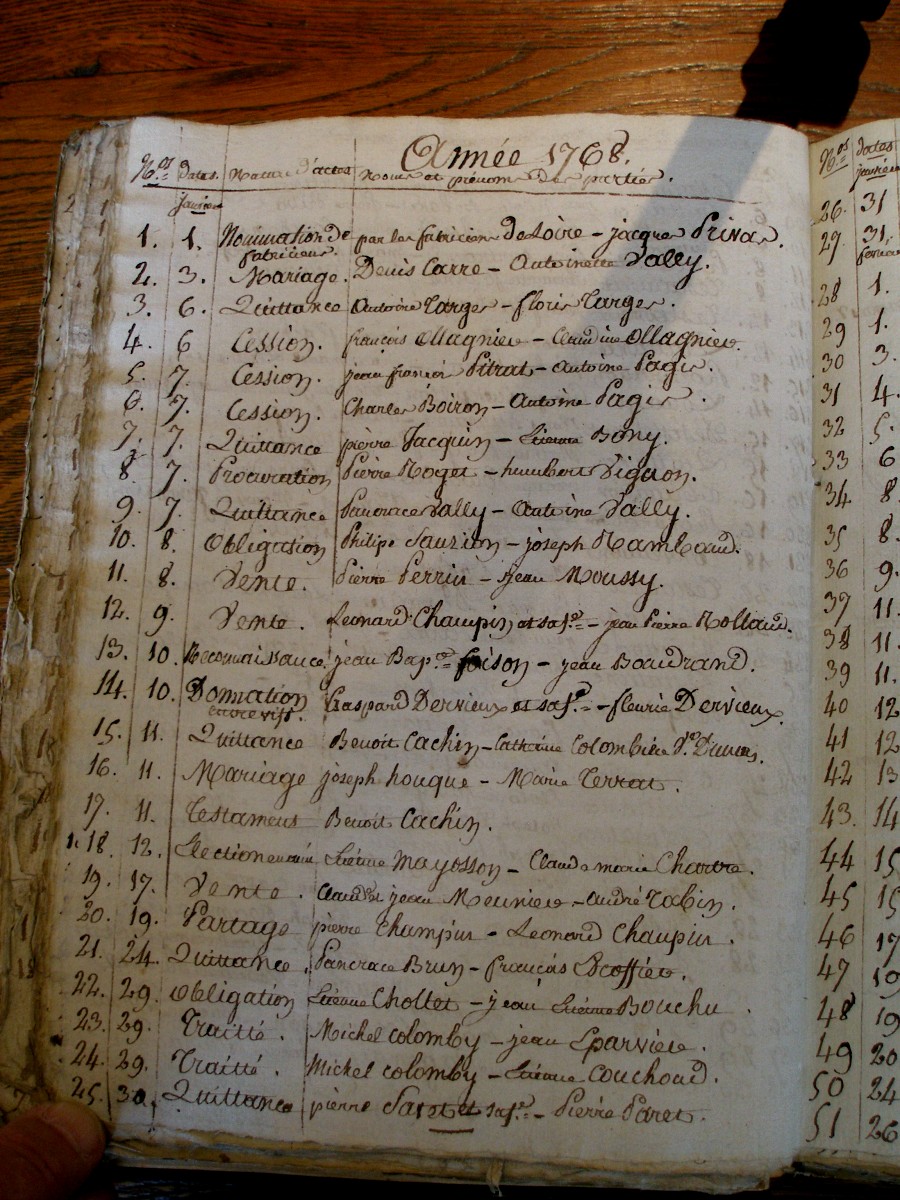 Année 1768.
N.os dates. Nature d'actes Noms et prénoms des parties.
janvier
1. 1. Nomination de par les fabriciens de Loire - jacques Privas.
fabricieus.
2. 3. Mariage. Denis Carre - Antoinette Vally.
3. 6. Quittance Antoine Targes - floris Targes.
4. 6 Cession. françois Ollagnier - Claudine Ollagnier.
5. 7. Cession. jean françois Pitrat - Antoine Pagis.
6. 7. Cession. Charles Boiron - Antoine Pagis.
7. 7. Quittance pierre Jacquin - Etienne Bony.
8. 7. Procuration Pierre Roget - humbert Vignon.
9. 7. Quittance Pancrace Vally - Antoine Vally.
10. 8. Obligation Philipe Sauzion - joseph Rambaud.
11. 8. Vente. Pierre Perrin - jean Moussy.
12. 9. Vente. Leonard Chaupin et sa fe. - jean Pierre Rolland.
13. 10. Reconnaissance jean Bapte. foison - jean Baudrand.
14. 10. Donnation Gaspard Dervieux et sa fe. - fleurie Dervieux.
entre vifs.
15. 11. Quittance Benoit Cachin - Catherine Colombière Ve.
16. 11. Mariage joseph houque - Marie Terrat.
17. 11. Testament Benoit Cachin.
18. 12. Election en ami Etienne Mayosson - Claude marie Chartre.
19. 17. Vente. Claude jean Meunier - André Robin.
20. 19. Partage pierre Champin - Leonard Chaupin.
21. 24. Quittance. Pancrace Brun - françois Escoffier.
22. 29. Obligation Etienne Choltet - jean Etienne Bouchu.
23. 29. Traitté. Michel Colomby - jean Eparvière.
24. 29. Traitté. Michel Colomby - Etienne Couchoud.
25. 30. Quittance pierre et sa fe. - Pierre Paret.
N.os dates
janvier
26. 31
27. 31.
28 1.
29 1.
30 3.
31 4.
32 5.
33 6
34 8.
35 8.
36 9.
37 11.
38 11.
39 11.
40 12
41 12
42 13
43. 14
44 15
45 15
46 17
47 19
48 19
49 20
50 24
51 26